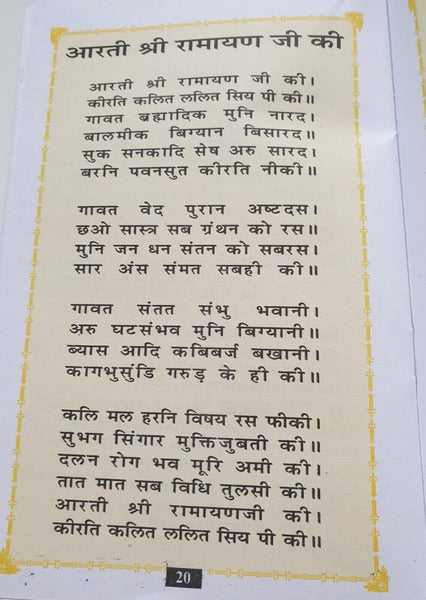 आरती श्री रामायण जी की
आरती श्री रामायण जी की।
कीरति कलित ललित सिय पी की॥
गावत ब्रह्मादिक मुनि नारद।
बालमीक बिग्यान बिसारद॥
सुक सनकादि सेष अरु सारद।
बरनि पवनसुत कीरति नीकी॥
गावत वेद पुरान अष्टदस।
छओ सास्त्र सब ग्रंथन को रस॥
मुनि जन धन संतन को सबरस।
सार अंस संमत सबही की॥
गावत संतत संभु भवानी।
अरु घटसंभव मुनि बिग्यानी॥
ब्यास आदि कबिबर्ज बखानी।
कागभुसुंडि गरुड़ के ही की॥
कलि मल हरनि विषय रस फीकी।
सुभग सिंगार मुक्तिजुबती की॥
दलन रोग भव मूरि अमी की।
तात मात सब विधि तुलसी की॥
आरती श्री रामायणजी की।
कीरति कलित ललित सिय पी की॥
20